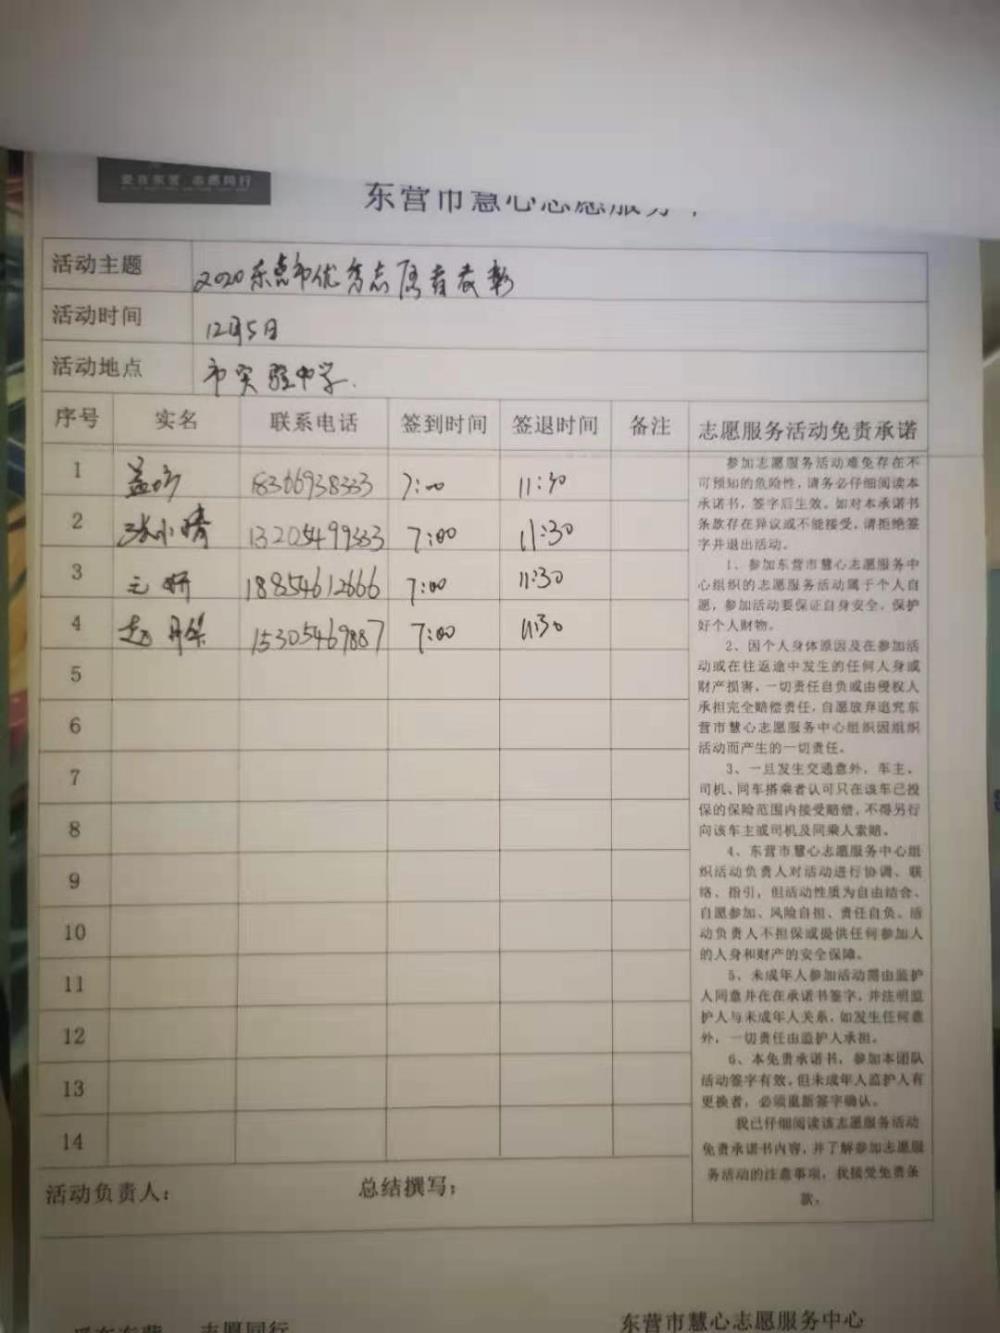 爱在东营 志愿同行
东营市慧心志愿服务中
活动主题 2020东营市优秀志愿者表彰
活动时间 12月5日
活动地点 市实验中学.
序号 实名 联系电话 签到时间 签退时间 备注 志愿服务活动免责承诺
1 18366938333 7:00 11:30
2 张小晴 13205499333 7:00 11:30
3 18854612666 7:00 11:30
4 赵 15305469887 7:00 11:30
5
6
7
8
9
10
11
12
13
14
参加志愿服务活动难免存在不
可预知的危险性，请务必仔细阅读本
承诺书，签字后生效。如对本承诺书
条款存在异议或不能接受，请拒绝签
字并退出活动。
1、参加东营市慧心志愿服务中
心组织的志愿服务活动属于个人自
愿，参加活动要保证自身安全、保护
好个人财物。
2、因个人身体原因及在参加活
动或在往返途中发生的任何人身或
财产损害，一切责任自负或由侵权人
承担完全赔偿责任，自愿放弃追究东
营市慧心志愿服务中心组织因组织
活动而产生的一切责任。
3、一旦发生交通意外，车主、
司机、同车搭乘者认可只在该车已投
保的保险范围内接受赔偿，不得另行
向该车主或司机及同乘人索赔。
4、东营市慧心志愿服务中心组
织活动负责人对活动进行协调、联
络、指引，但活动性质为自由结合、
自愿参加、风险自担、责任自负。活
动负责人不担保或提供任何参加人
的人身和财产的安全保障。
5、未成年人参加活动需由监护
人同意并在在承诺书签字，并注明监
护人与未成年人关系，如发生任何意
外，一切责任由监护人承担。
6、本免责承诺书，参加本团队
活动签字有效，但未成年人监护人有
更换者，必须重新签字确认。
我已仔细阅读该志愿服务活动
免责承诺书内容，并了解参加志愿服
务活动的注意事项，我接受免责条
款。
活动负责人： 总结撰写；
爱在东营 志愿同行 东营市慧心志愿服务中心